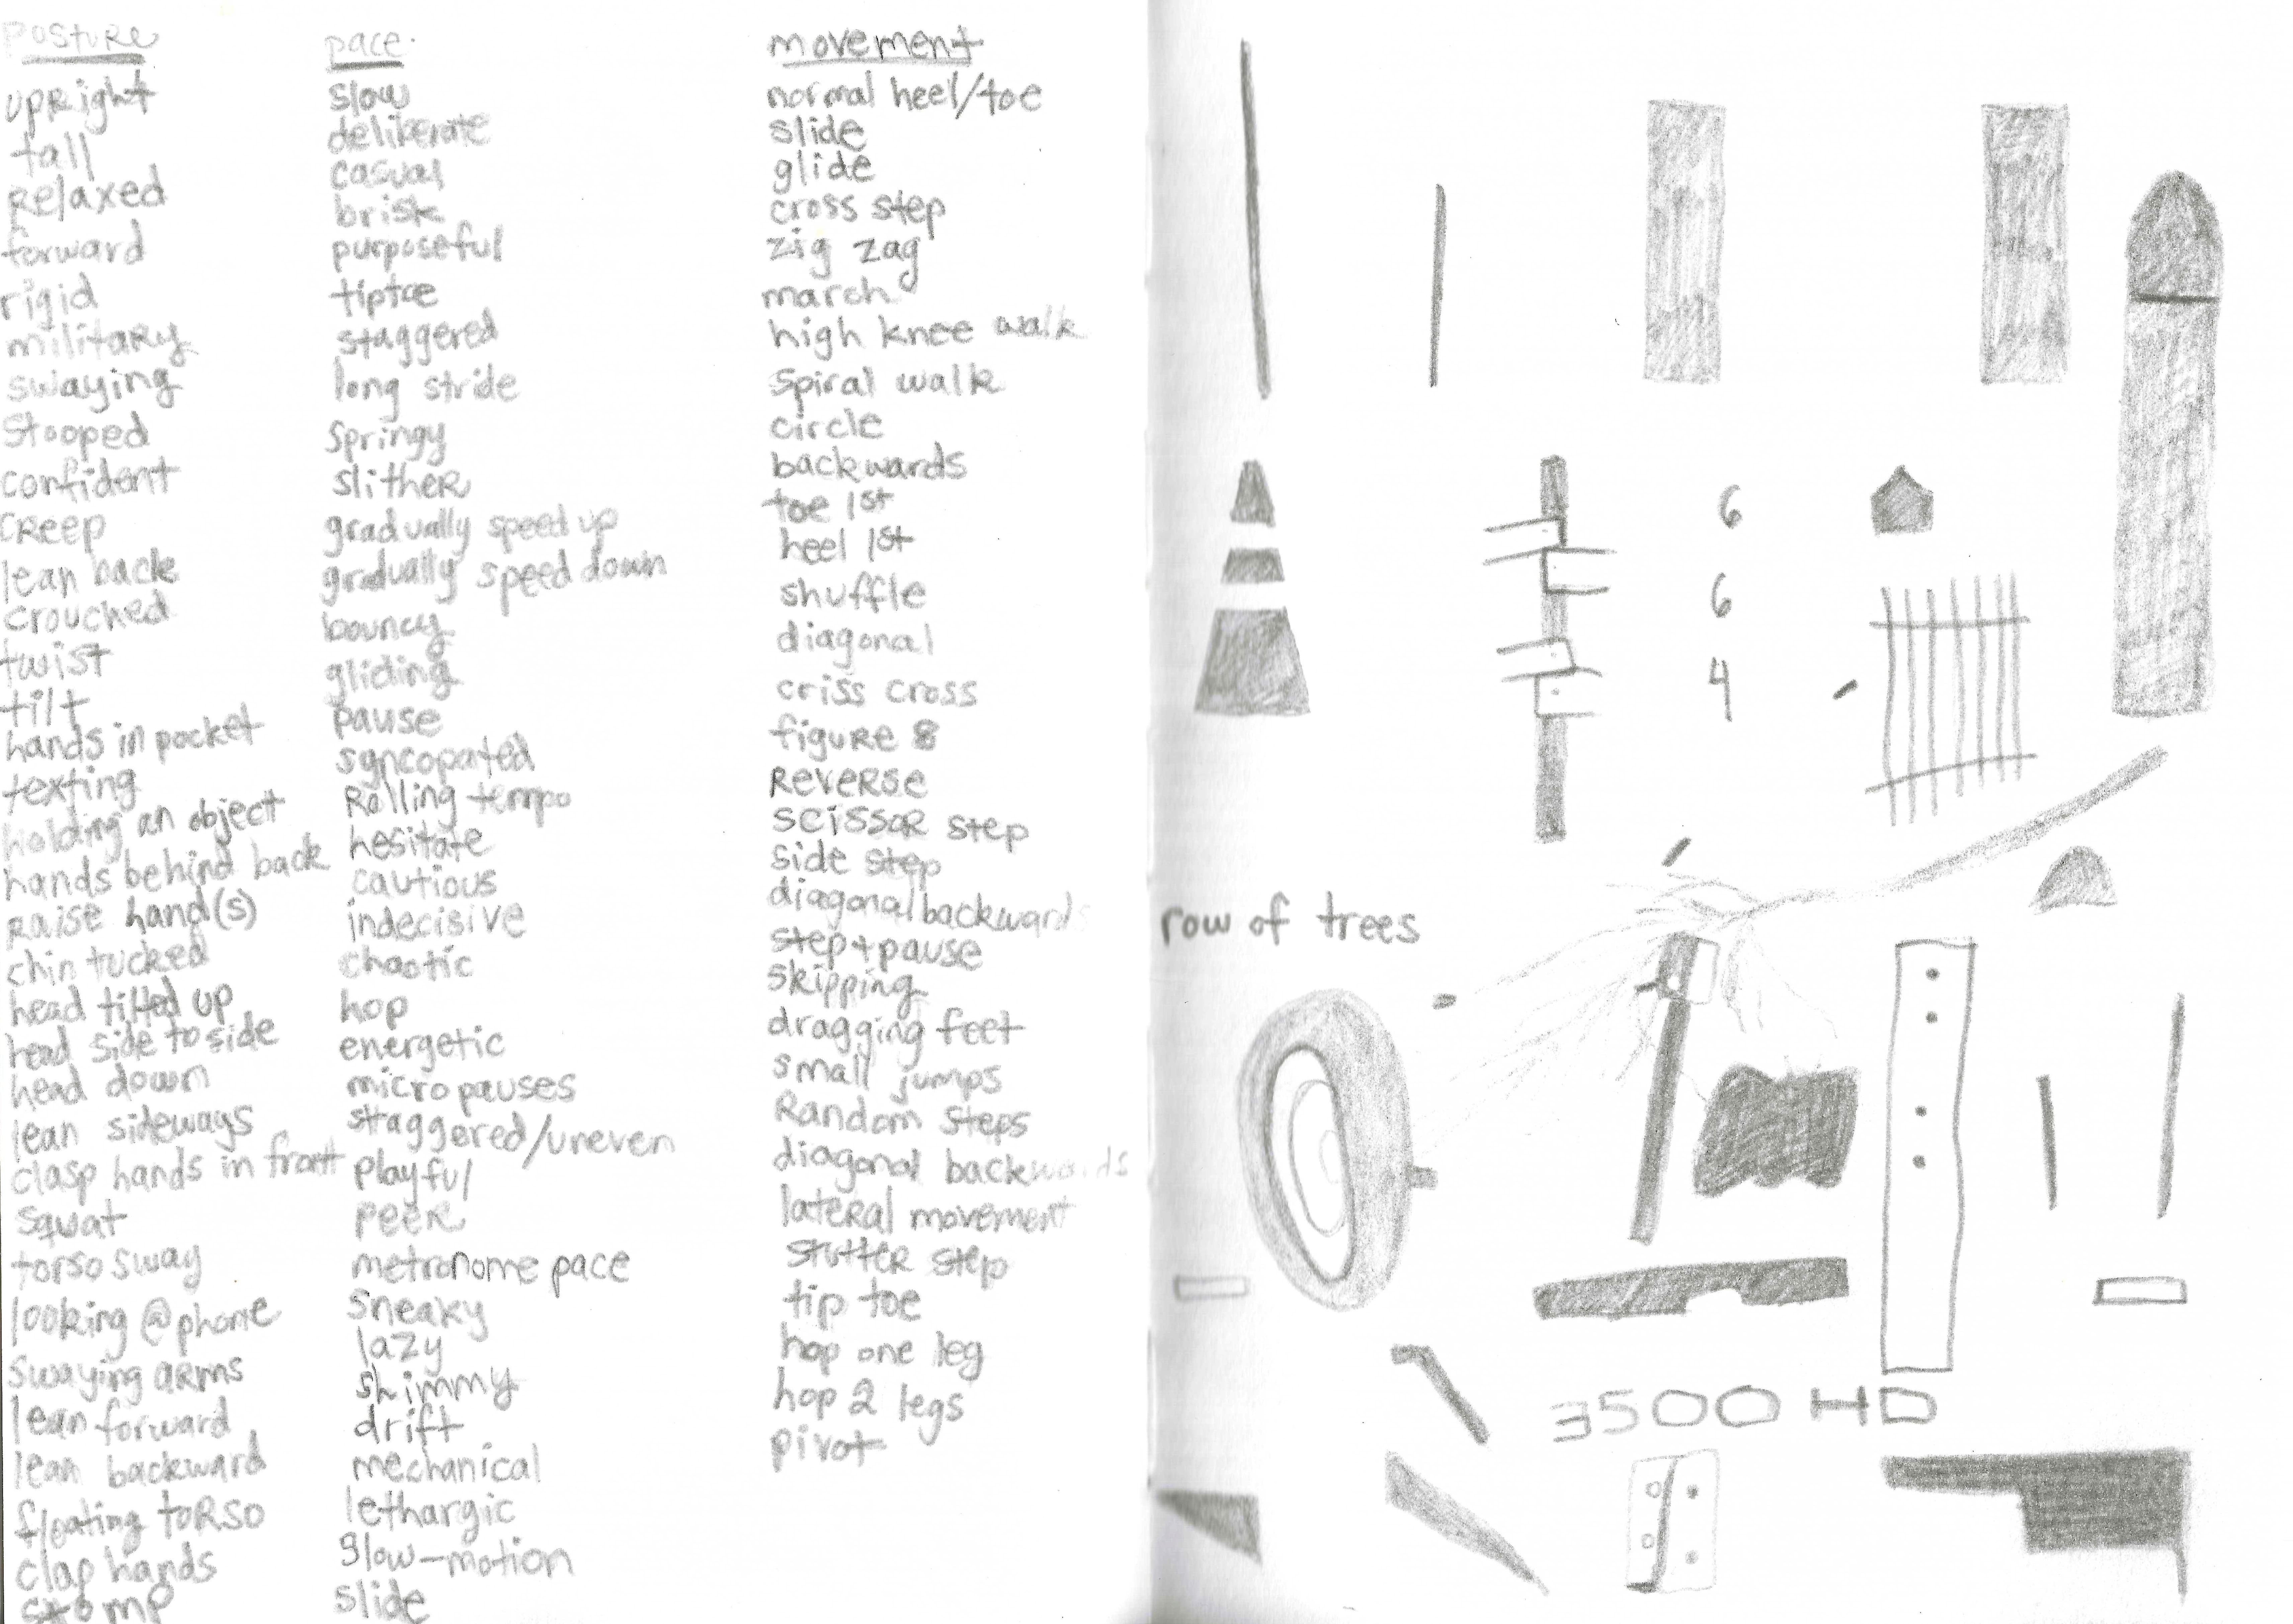 posture
upright
tall
relaxed
forward
rigid
military
swaying
stooped
confident
creep
lean back
crouched
twist
tilt
hands in pocket
texting
holding an object
hands behind back
raise hand(s)
chin tucked
head tilted up
head side to side
head down
lean sideways
clasp hands in front
squat
torso sway
looking @ phone
swaying arms
lean forward
lean backward
floating torso
clap hands
stomp
pace
slow
deliberate
casual
brisk
purposeful
tiptoe
staggered
long stride
springy
slither
gradually speed up
gradually speed down
bouncy
gliding
pause
syncopated
Rolling tempo
hesitate
cautious
indecisive
chaotic
hop
energetic
micro pauses
staggered/uneven
playful
peer
metronome pace
sneaky
lazy
shimmy
drift
mechanical
lethargic
slow-motion
slide
movement
normal heel/toe
slide
glide
cross step
zig zag
march
high knee walk
spiral walk
circle
backwards
toe 1st
heel 1st
shuffle
diagonal
criss cross
figure 8
Reverse
scissor step
side step
diagonal backwards
step + pause
skipping
dragging feet
small jumps
Random steps
diagonal backwards
lateral movement
stutter step
tip toe
hop one leg
hop 2 legs
pivot
6
6
4
row of trees
3500 HD